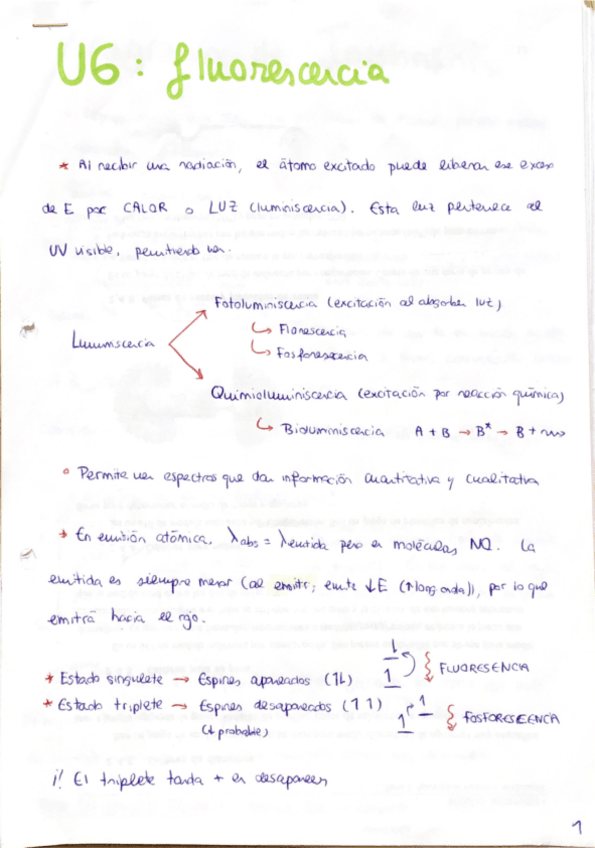 U6: fluorescencia
* Al recibir una radiación, el átomo excitado puede liberar ese exceso
de E por CALOR o LUZ (luminiscencia). Esta luz pertenece al
UV visible, permitiendo ver.
Fotoluminiscencia (excitación al absorber luz)
↳ Fluorescencia
↳ Fosforescencia
Luminiscencia
Quimioluminiscencia (excitación por reacción química)
↳ Bioluminiscencia A + B → B* → B +
° Permite ver espectros que dan información cuantitativa y cualitativa
→ En emisión atómica, λabs = λemitida pero en moléculas NO. La
emitida es siempre menor (al emitir, emite ↓E (↑long onda)), por lo que
emitirá hacia el rojo.
* Estado singulete → Espines apareados (1L) FLUORESENCIA
* Estado triplete → Espines desapareados (1 1) FOSFORESCENCIA
(↓ probable)
¡! El triplete tarda + en desaparecer
1